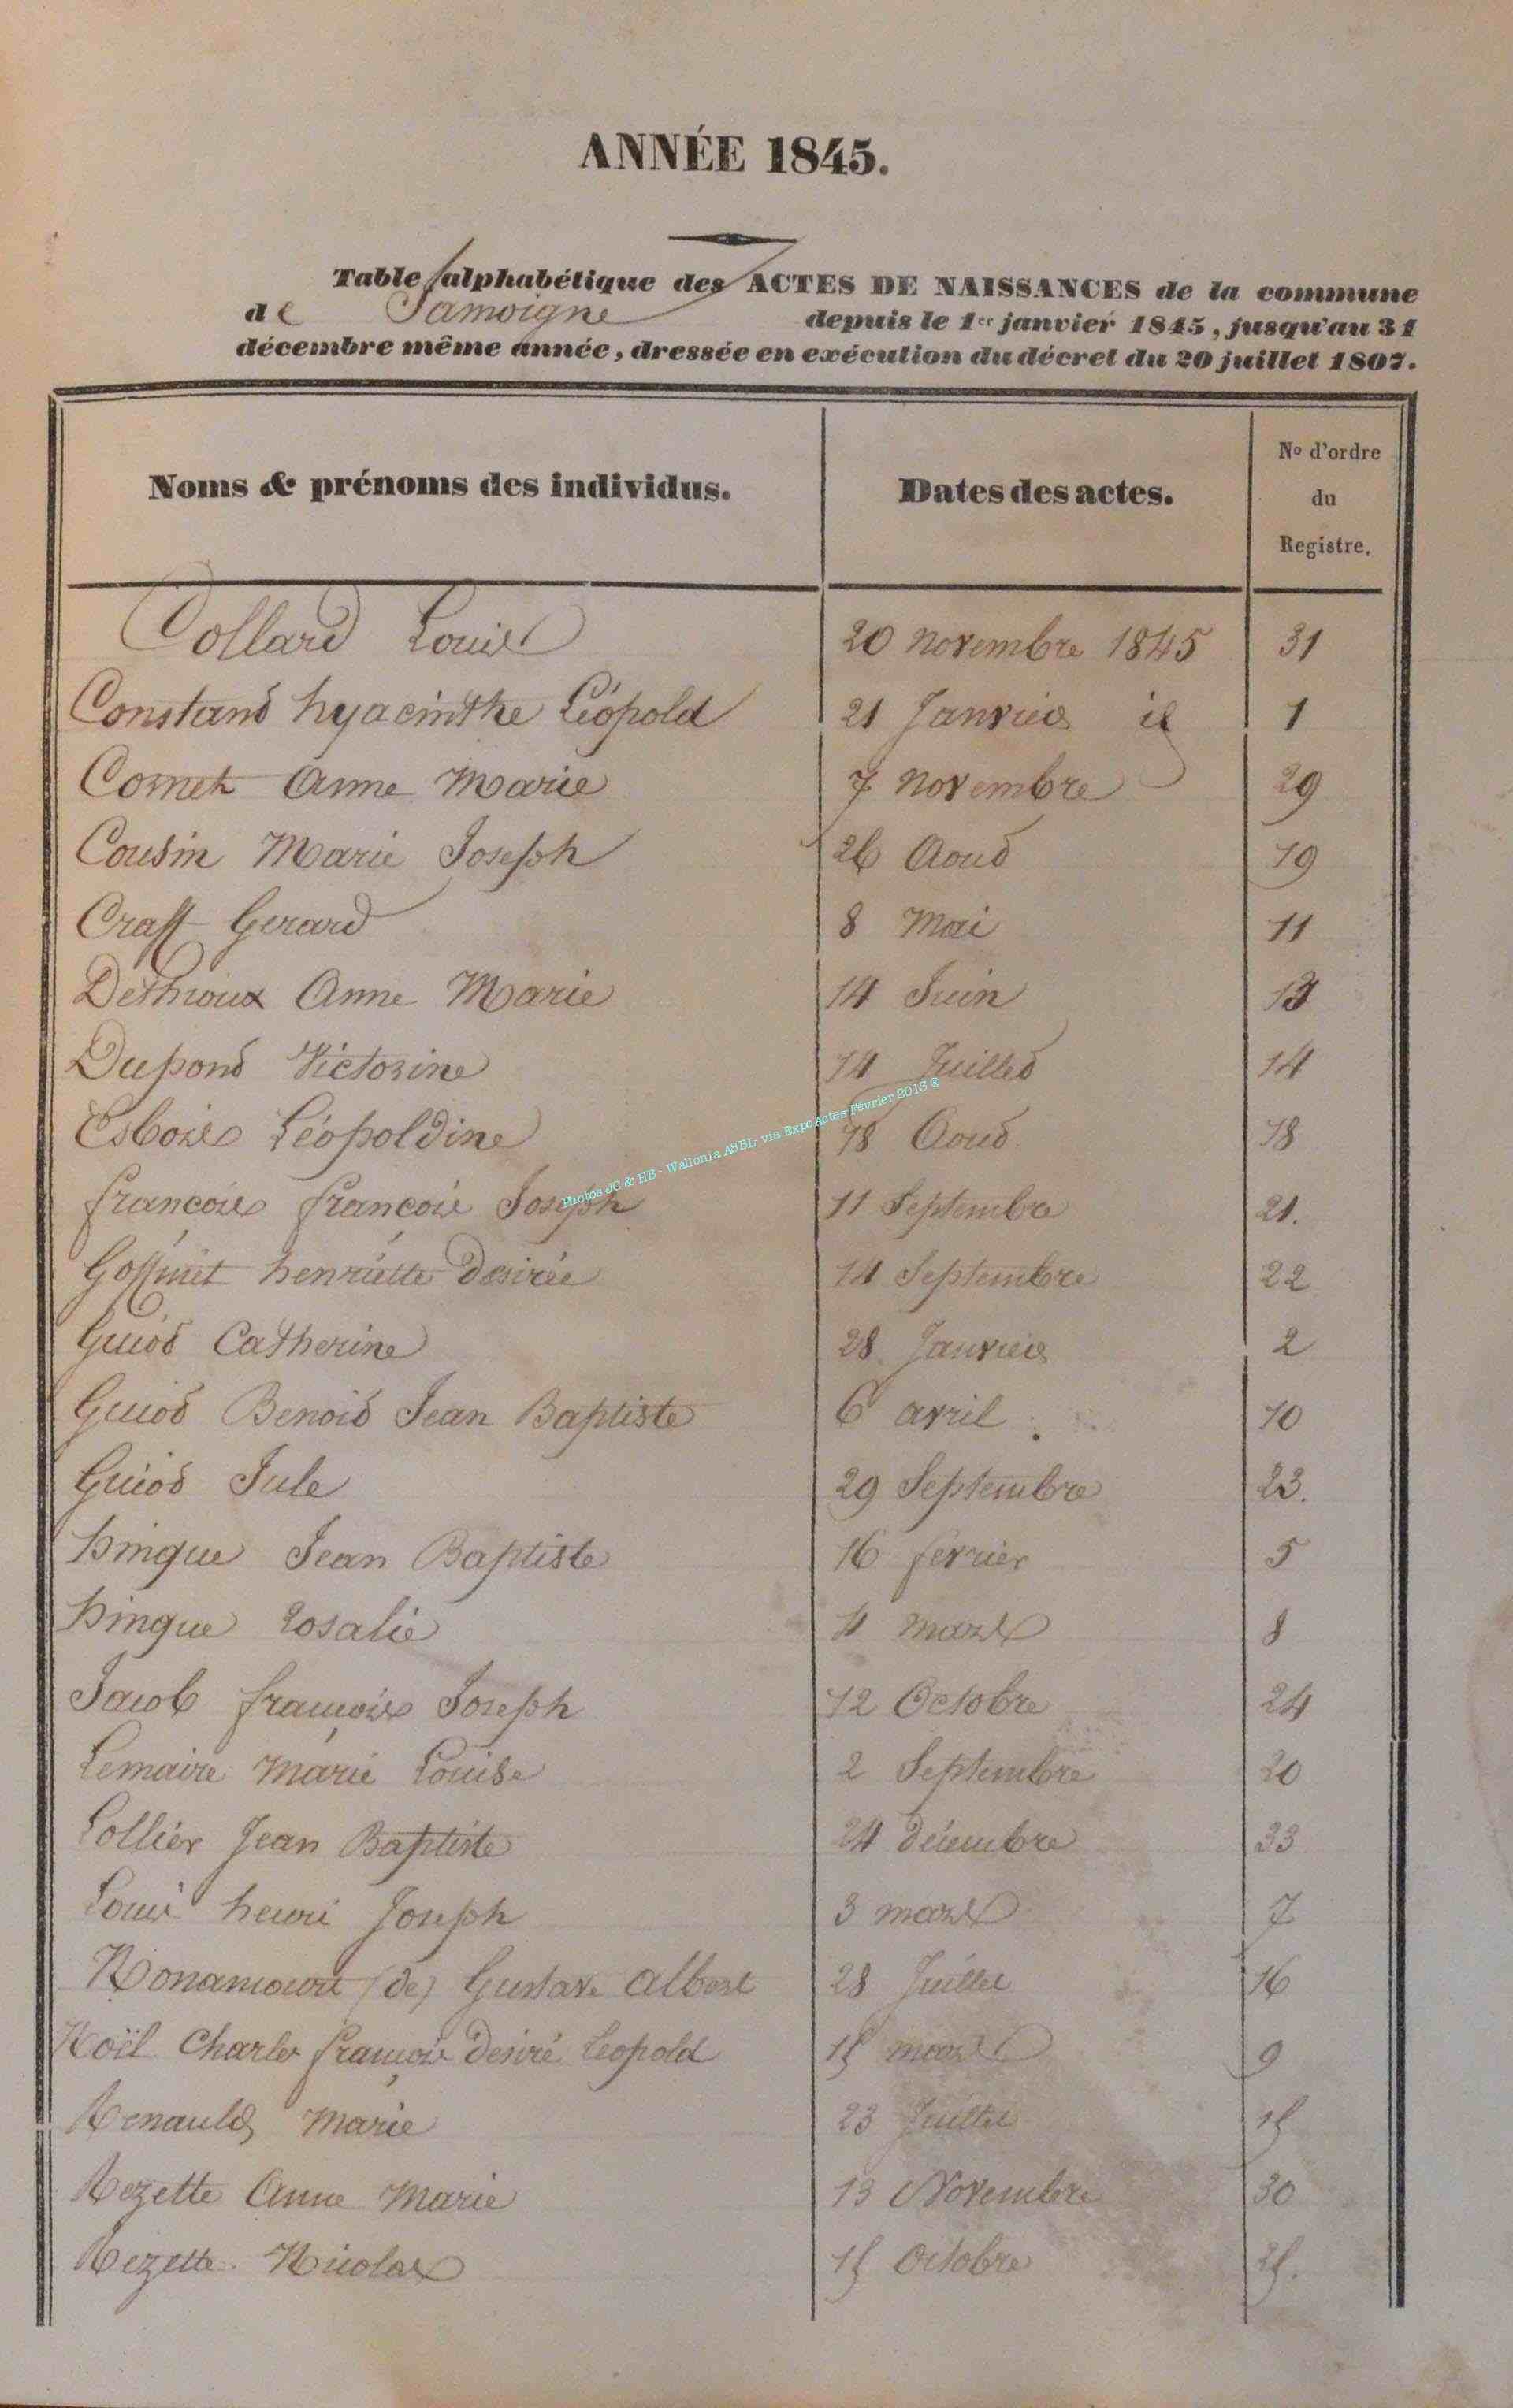 ANNÉE 1845.
Table alphabétique des ACTES DE NAISSANCES de la commune
de Jamoigne depuis le 1er janvier 1845, jusqu'au 31
décembre même année, dressée en exécution du décret du 20 juillet 1807.
Noms & prénoms des individus. Dates des actes. No d'ordre du Registre.
Collard Louis 20 novembre 1845 31
Constand hyacinthe Léopold 21 Janvier id 1
Cornet Anne Marie 7 novembre 29
Cousin Marie Joseph 26 Aoud 19
Craff Gerard 8 Mai 11
Dethioux Anne Marie 14 Juin 13
Dupond Victorine 14 Juilled 14
Esbois Léopoldine 18 Aoud 18
françois françois Joseph 11 Septembre 21.
Goffinet henriette Desirée 14 Septembre 22
Guiod Catherine 28 Janvier 2
Guiod Benoid Jean Baptiste 6 avril 10
Guiod Jule 29 Septembre 23.
hingue Jean Baptiste 16 fevrier 5
hingue Rosalie 4 mars 8
Jacob françois Joseph 12 Octobre 24
Lemaire Marie Louise 2 Septembre 20
Lollier Jean Baptiste 24 décembre 33
Louis henri Joseph 3 mars 7
(de) Gustave Albert 28 Juillet 16
Noël Charles françois Desiré Leopold 15 mars 9
Renauld Marie 23 Juillet 15
Rezette Anne Marie 13 Novembre 30
Rezette Nicolas 15 Octobre 25.
Photos JC & HB - Wallonia ASBL, via ExpoActes Février 2013 ®